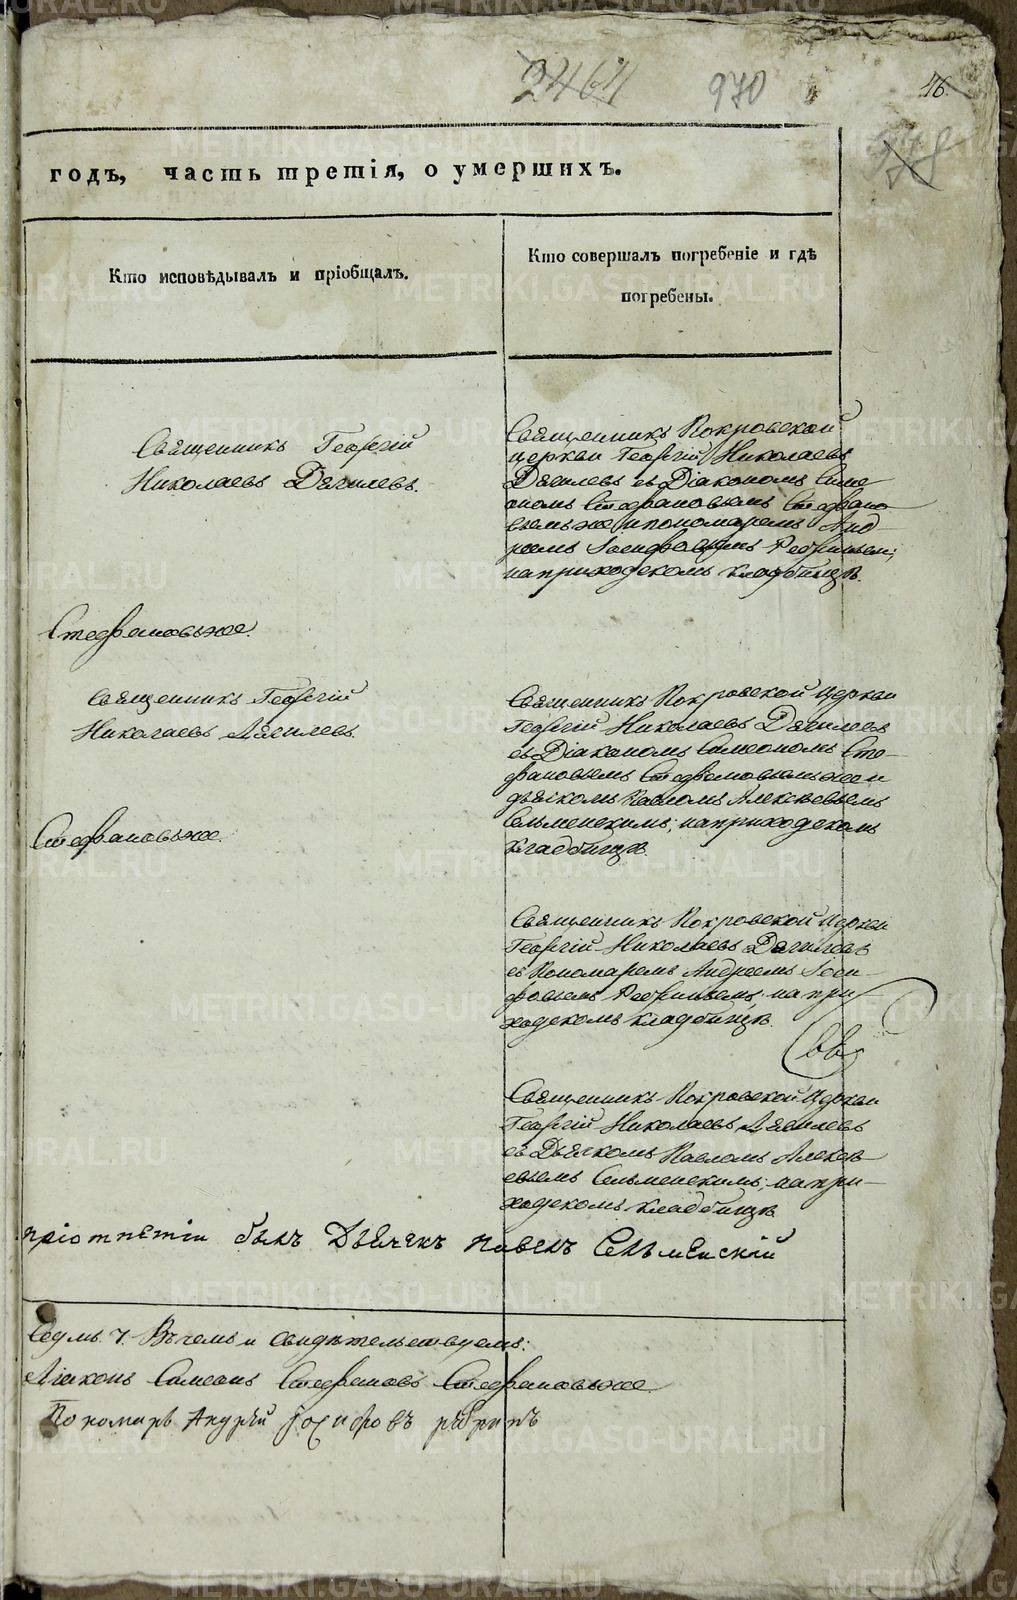 2464
970
46.
978
годъ, часть третія, о умершихъ.
Кто исповѣдывалъ и пріобщалъ.
Кто совершалъ погребеніе и гдѣ
погребены.
Священникъ Георгій
Николаевъ Дягилевъ.
Священникъ Покровской
церкви Георгій Николаевъ
Дягилевъ съ Діакономъ Симе
ономъ Стефановымъ Стефано
вымъ же и пономаремъ Анд
реемъ Іосифовымъ
на приходскомъ кладбищѣ.
Стефановъ же.
Священникъ Георгій
Николаевъ Дягилевъ.
Священникъ Покровской Церкви
Георгій Николаевъ Дягилевъ
съ Діакономъ Симеономъ Сте-
фановымъ Стефановымъ же и
дьячкомъ Павломъ Алексѣевымъ
Сельменскимъ; на приходскомъ
кладбищѣ.
Стефановъ же.
Священникъ Покровской Церкви
Георгій Николаевъ Дягилевъ
съ Пономаремъ Андреемъ Іоси-
фовымъ на при
ходскомъ кладбищѣ.
Священникъ Покровской Церкви
Георгій Николаевъ Дягилевъ
съ Дьячкомъ Павломъ Алексѣ
евымъ Сельменскимъ; на при-
ходскомъ кладбищѣ
былъ Дьячекъ Павелъ Сельменскій
Седмь 7. Въ чемъ и свидѣтельствуемъ:
Діаконъ Симеонъ Стефановъ Стефановъ же
Пономарь Андрей Іосифовъ
METRIKI.GASO-URAL.RU